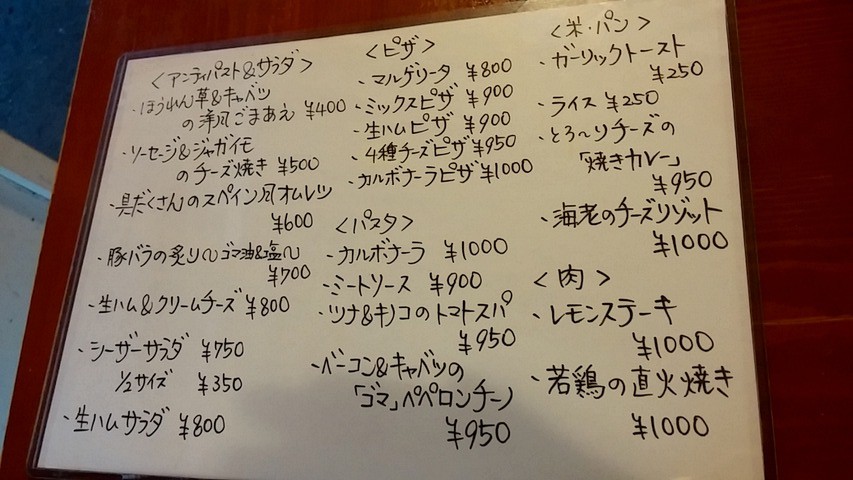 ＜アンティパスト&サラダ＞
・ほうれん草&キャベツ
の洋風ごまあえ ¥400
・ソーセージ&ジャガイモ
のチーズ焼き ¥500
・具だくさんのスペイン風オムレツ
¥600
・豚バラの炙り〜ゴマ油&塩〜
¥700
・生ハム&クリームチーズ ¥800
・シーザーサラダ ¥750
1/2サイズ ¥350
・生ハムサラダ ¥800
＜ピザ＞
・マルゲリータ ¥800
・ミックスピザ ¥900
・生ハムピザ ¥900
・4種チーズピザ ¥950
・カルボナーラピザ ¥1000
＜パスタ＞
・カルボナーラ ¥1000
・ミートソース ¥900
・ツナ&キノコのトマトスパ
¥950
・ベーコン&キャベツの
「ゴマ」ペペロンチーノ
¥950
＜米・パン＞
・ガーリックトースト
¥250
・ライス ¥250
・とろ〜りチーズの
「焼きカレー」
¥950
・海老のチーズリゾット
¥1000
＜肉＞
・レモンステーキ
¥1000
・若鶏の直火焼き
¥1000